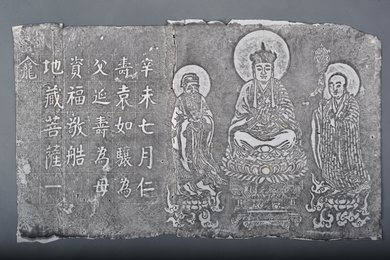 辛未七月仁
壽袁如驤為
父延壽為母
資福敬造
地藏菩薩一
龕